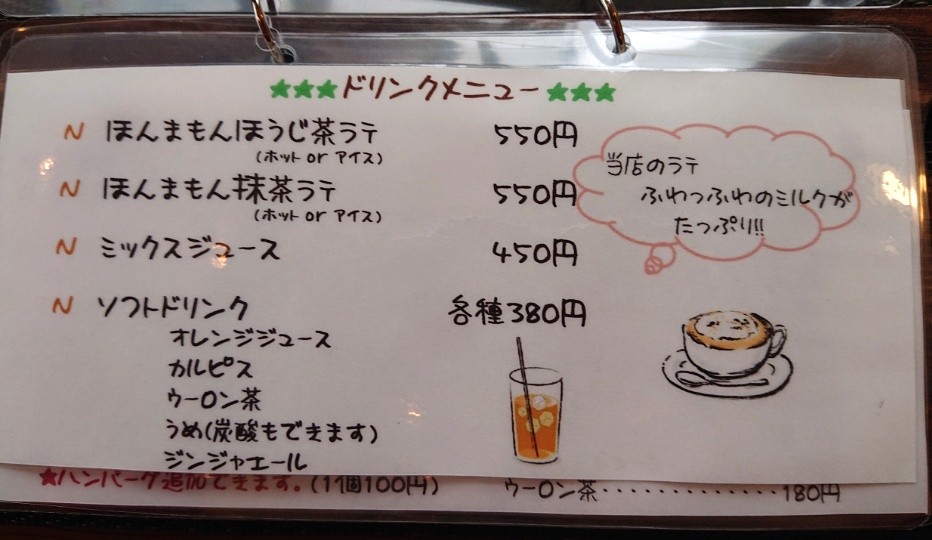 ★★★ドリンクメニュー★★★
N ほんまもんほうじ茶ラテ 550円
(ホット or アイス)
N ほんまもん抹茶ラテ 550円
(ホット or アイス)
N ミックスジュース 450円
N ソフトドリンク 各種380円
オレンジジュース
カルピス
ウーロン茶
うめ(炭酸もできます)
ジンジャエール
当店のラテ
ふわっふわのミルクが
たっぷり!!
★ハンバーグ追加できます。(1個100円)
ウーロン茶・・・・・・・・・・・・・180円